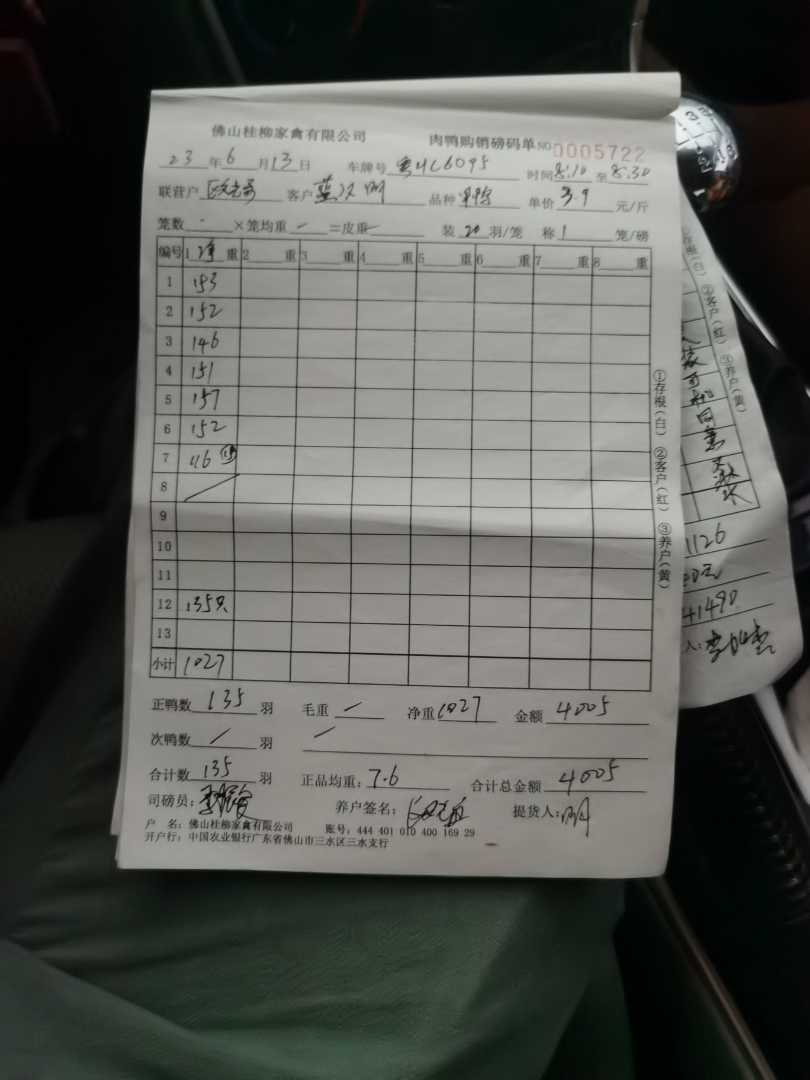 佛山桂柳家禽有限公司 肉鸭购销磅码单 NO 0005722
23年6月13日 车牌号 粤HC6095 时间8:10至8:30
联营户 客户 蓝 明 品种 单价 3.9 元/斤
笼数 - ×笼均重 - =皮重 - 装20羽/笼 称1笼/磅
编号 1净重 2重 3重 4重 5重 6重 7重 8重
1 153
2 152
3 146
4 151
5 157
6 152
7 116
8
9
10
11
12 135只
13
小计 1027
正鸭数 135 羽 毛重 / 净重 1027 金额 4005
次鸭数 / 羽 /
合计数 135 羽 正品均重:7.6 合计总金额 4005
司磅员: 养户签名: 提货人:明
户 名:佛山桂柳家禽有限公司 账号:444 401 010 400 169 29
开户行:中国农业银行广东省佛山市三水区三水支行
①存根(白) ②客户(红) ③养户(黄)
存根(白) ②客户(红) ③养户(黄)
1126
41490